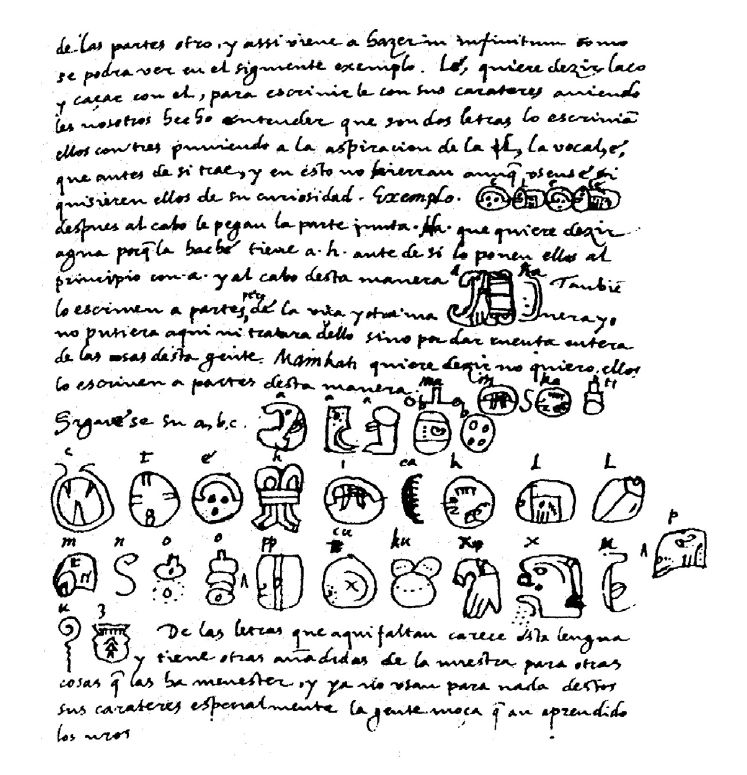 de las partes otro, y assi viene a hazer in infinitum como
se podra ver en el siguiente exemplo. Lé, quiere dezir laço
y caçar con el, para escrivirle con sus carateres aviendo
les nosotros hecho entender que son dos letras lo escrivian
ellos con tres puniendo a la aspiracion de la l, la vocal, é,
que antes de si trae, y en esto no hierran aunq̃ usense si
quisieren ellos de su curiosidad. Exemplo. e l e lé
despues al cabo le pegan la parte junta. Ha. que quiere dezir
agua porq̃ la hache tiene a. h. ante de si lo ponen ellos al
principio con a. y al cabo desta manera a ha Tambiẽ
lo escriven a partes, pero de la una y otra ma nera yo
no pusiera aqui ni tratara dello sino por dar cuenta entera
de las cosas desta gente. Mainkati quiere dezir no quiero, ellos
lo escriven a partes desta manera ma i n ka ti
Siguese su a, b, c. a a a b b
c t é h i ca k l l
m n o o pp cu ku x x u p
u z De las letras que aqui faltan carece esta lengua
y tiene otras añadidas de la nuestra para otras
cosas q̃ las ha menester, y ya no usan para nada destos
sus carateres especialmente la gente moça q̃ an aprendido
los nros